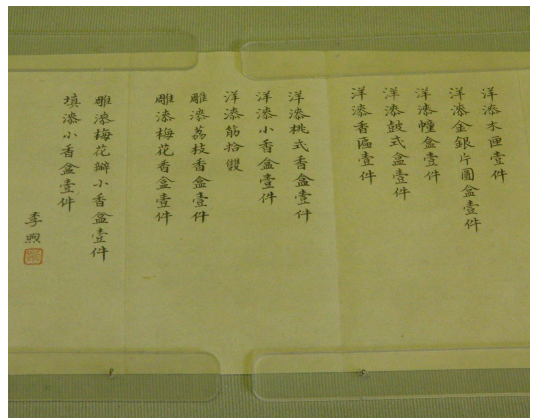 洋漆木匣壹件
洋漆金銀片圓盒壹件
洋漆幢盒壹件
洋漆鼓式盒壹件
洋漆香匾壹件
洋漆桃式香盒壹件
洋漆小香盒壹件
洋漆筯拾雙
雕漆荔枝香盒壹件
雕漆梅花香盒壹件
雕漆梅花瓣小香盒壹件
填漆小香盒壹件
李煦